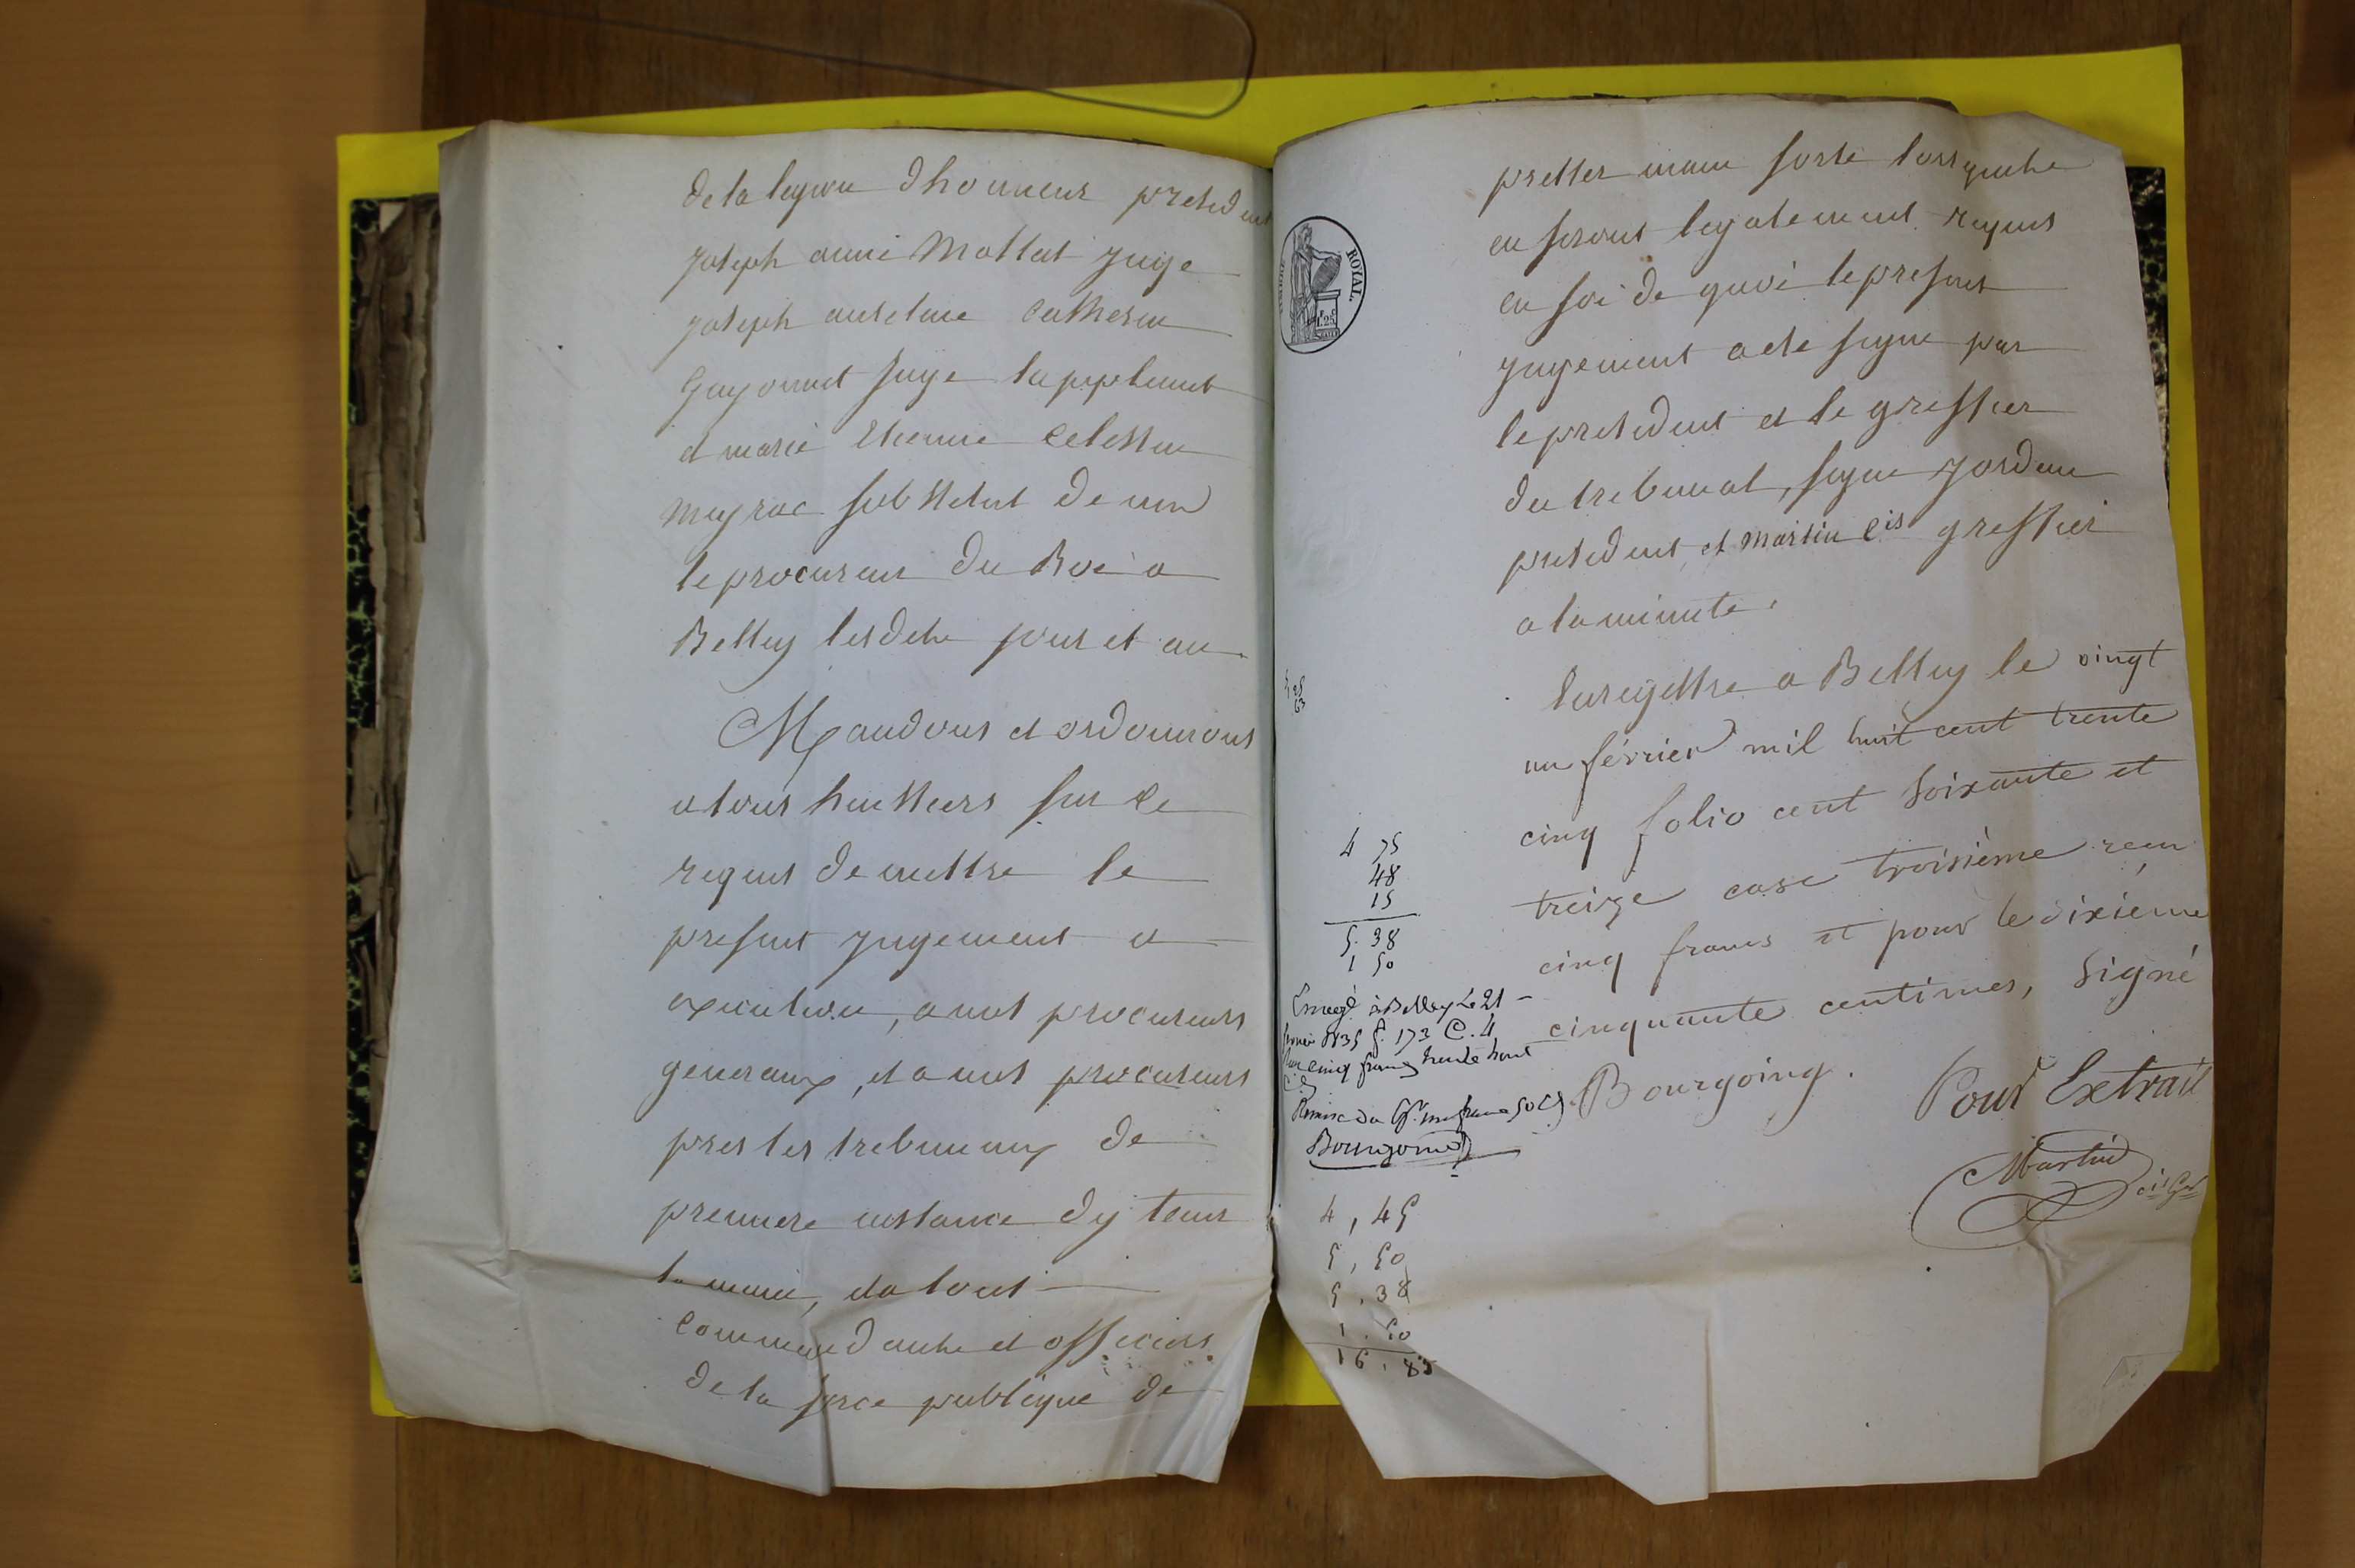 de la legion dhonneur president
joseph aimé Mollet juge
joseph anselme Catherin
Guyonnet juge suppleant
et marie Etienne Celestin
Meyrac substitut de mr
le procureur du Roi a
Belley lesdits jour et an
Mandons et ordonnons
a tous huissiers sur ce
requis de mettre le
present jugement a
execution, a nos procureurs
generaux, et a nos procureurs
pres les tribunaux de
premiere instance dy tenir
la main, et a tous
commandants et officiers
de la force publique de
pretter main forte lorsquils
en seront legalement requis
en foi de quoi le present
jugement a ete signe par
le president et le greffier
du tribunal, signe Jordan
president, et Martin cis greffier
a la minute.
Enregistre a Belley le vingt
un février mil huit cent trente
cinq folio cent soixante et
treize case troisième reçu
cinq francs et pour le dixième
cinquante centimes, signé
Bourgoing. Pour Extrait
Martin cis Ger
TIMBRE ROYAL.
1F 25C
4 75
48
15
5.38
1 50
Enregé à Belley le 21
février 1835 f. 173 C. 4
reçu cinq francs trente huit
Cs
Remise du Gr. un franc 50 Cs
Bourgoing
4,45
5,50
5.38
1.50
16.83